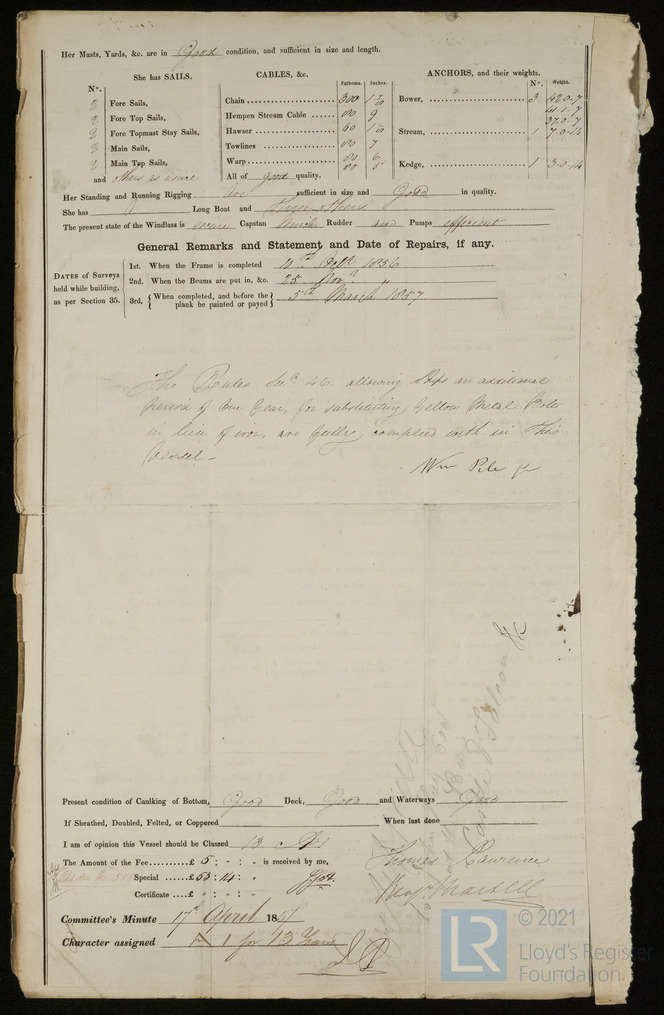 Her Masts, Yards, &c. are in Good condition, and sufficient in size and length.
She has SAILS.
CABLES, &c.
ANCHORS, and their weights.
N°.
Fathoms. Inches.
N°. Weight.
2 Fore Sails,
2 Fore Top Sails,
2 Fore Topmast Stay Sails,
2 Main Sails,
2 Main Top Sails,
and others as usual
Chain 300
Hempen Stream Cable 90 9
Hawser 60
Towlines 90 7
Warp 90 6
90 5
All of good quality.
Bower, 3 42.0.7
41.1.7
37.0.7
Stream, 1 7.0.14
Kedge, 1 3.0.14
Her Standing and Running Rigging are sufficient in size and Good in quality.
She has a Long Boat and three others
The present state of the Windlass is Capstan Rudder and Pumps efficient
General Remarks and Statement and Date of Repairs, if any.
DATES of Surveys held while building, as per Section 35.
1st. When the Frame is completed 1856
2nd. When the Beams are put in, &c. 25 Novr "
3rd. { When completed, and before the plank be painted or payed } 5th March 1857
The Rules Secn 46. allowing Ships an additional
period of One Year, for substituting Yellow Metal Bolts
in lieu of iron, are fully complied with in this
Vessel -
Wm Pile Jr
Present condition of Caulking of Bottom, Good Deck, Good and Waterways Good
If Sheathed, Doubled, Felted, or Coppered When last done
I am of opinion this Vessel should be Classed 13 A 1
The Amount of the Fee £ 5 : " : " is received by me,
Special £ 53 : 14 : "
Certificate £ " : " : "
Thomas Lawrence
Committee's Minute 17th April 1857
Character assigned A 1 for 13 Years
LR
© 2021
Lloyd's Register
Foundation.